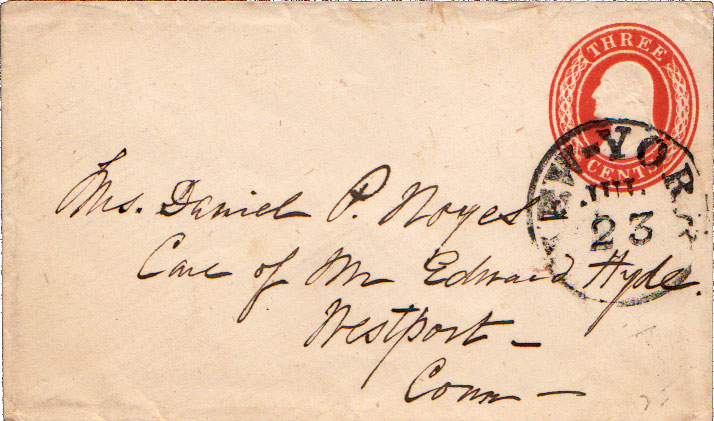 THREE
CENTS
NEW-YORK
JUL
23
Mrs. Daniel P. Noyes
Care of Mr Edward Hyde.
Westport -
Conn -